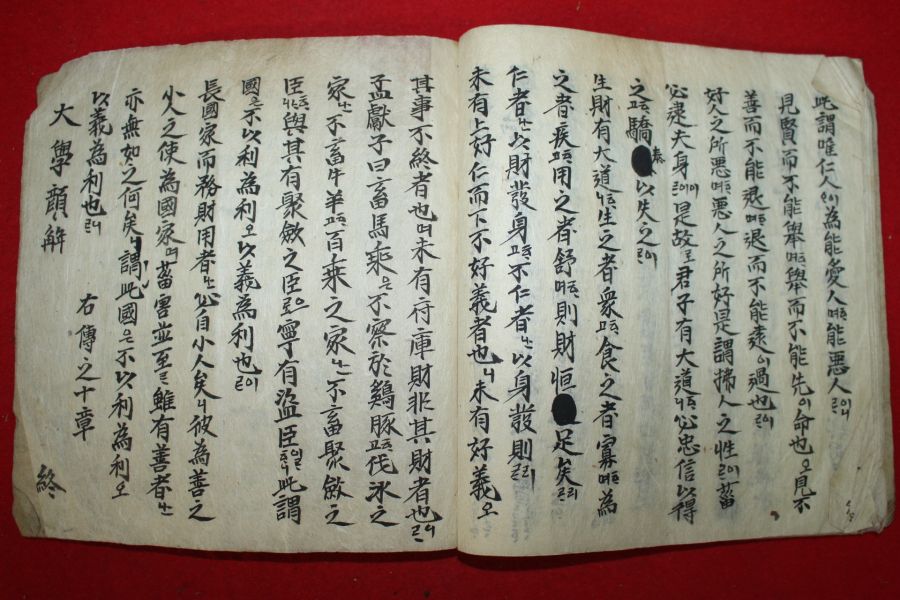 此謂唯仁人為能愛人能惡人르이니
見賢而不能舉舉而不能先이命也오見不
善而不能退退而不能遠이過也르이
好人之所惡惡人之所好是謂拂人之性르이菑
必逮夫身르이是故로君子有大道必忠信以得
之驕泰以失之르이
生財有大道生之者衆食之者寡為
之者疾用之者舒則財恒足矣르리
仁者는以財發身不仁者는以身發則르리
未有上好仁而下不好義者也니未有好義오
其事不終者也며未有府庫財非其財者也르니
孟獻子曰畜馬乘은不察於鷄豚伐氷之
家는不畜牛羊百乘之家는不畜聚斂之
臣與其有聚斂之臣寧有盜臣此謂
國은不以利為利오以義為利也르이
長國家而務財用者는必自小人矣니彼為善之
小人之使為國家면菑害並至르雖有善者는
亦無如之何矣니謂此國은不以利為利오
以義為利也르니
大學顔觧 右傳之十章 終